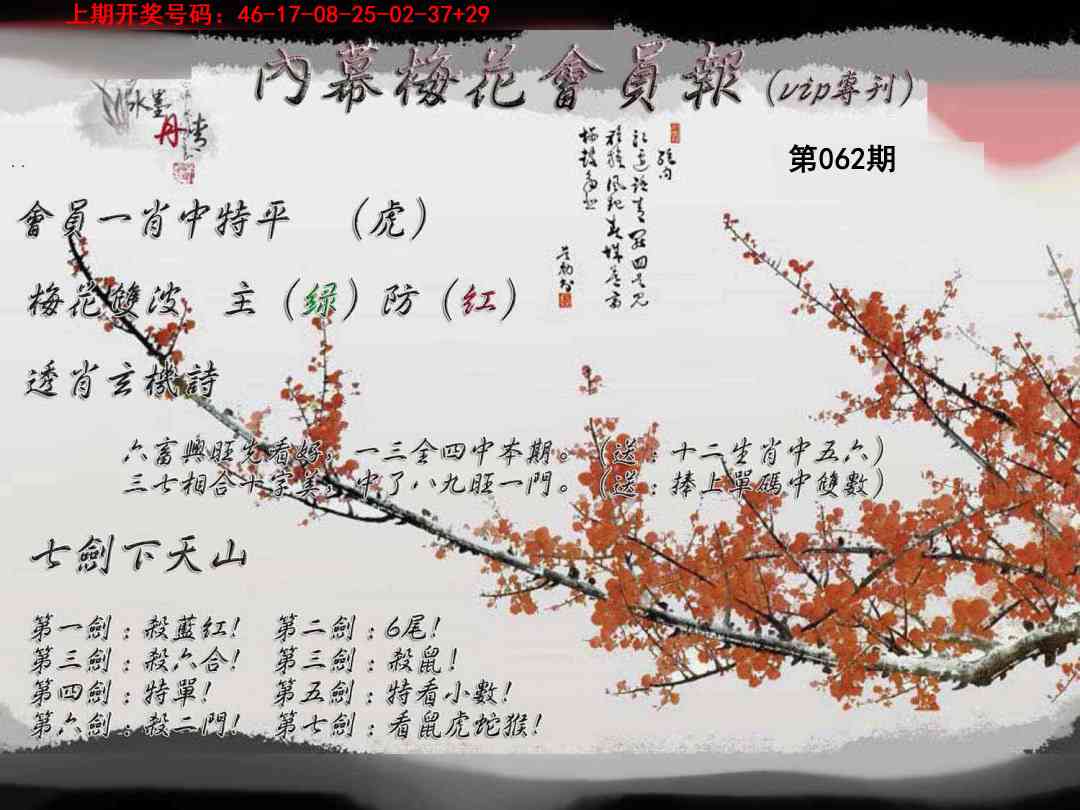 上期开奖号码：46-17-08-25-02-37+29
內幕梅花會員報（vip專刊）
水墨
丹青
第062期
會員一肖中特平 （虎）
梅花雙波 主（绿）防（红）
透肖玄機詩
六畜興旺先看好，一三合四中本期。（送：十二生肖中五六）
三七相合十字美，中了八九旺一門。（送：捧上單碼中雙數）
七劍下天山
第一劍：殺藍紅! 第二劍：6尾!
第三劍：殺六合! 第三劍：殺鼠!
第四劍：特單! 第五劍：特看小數!
第六劍：殺二門! 第七劍：看鼠虎蛇猴!